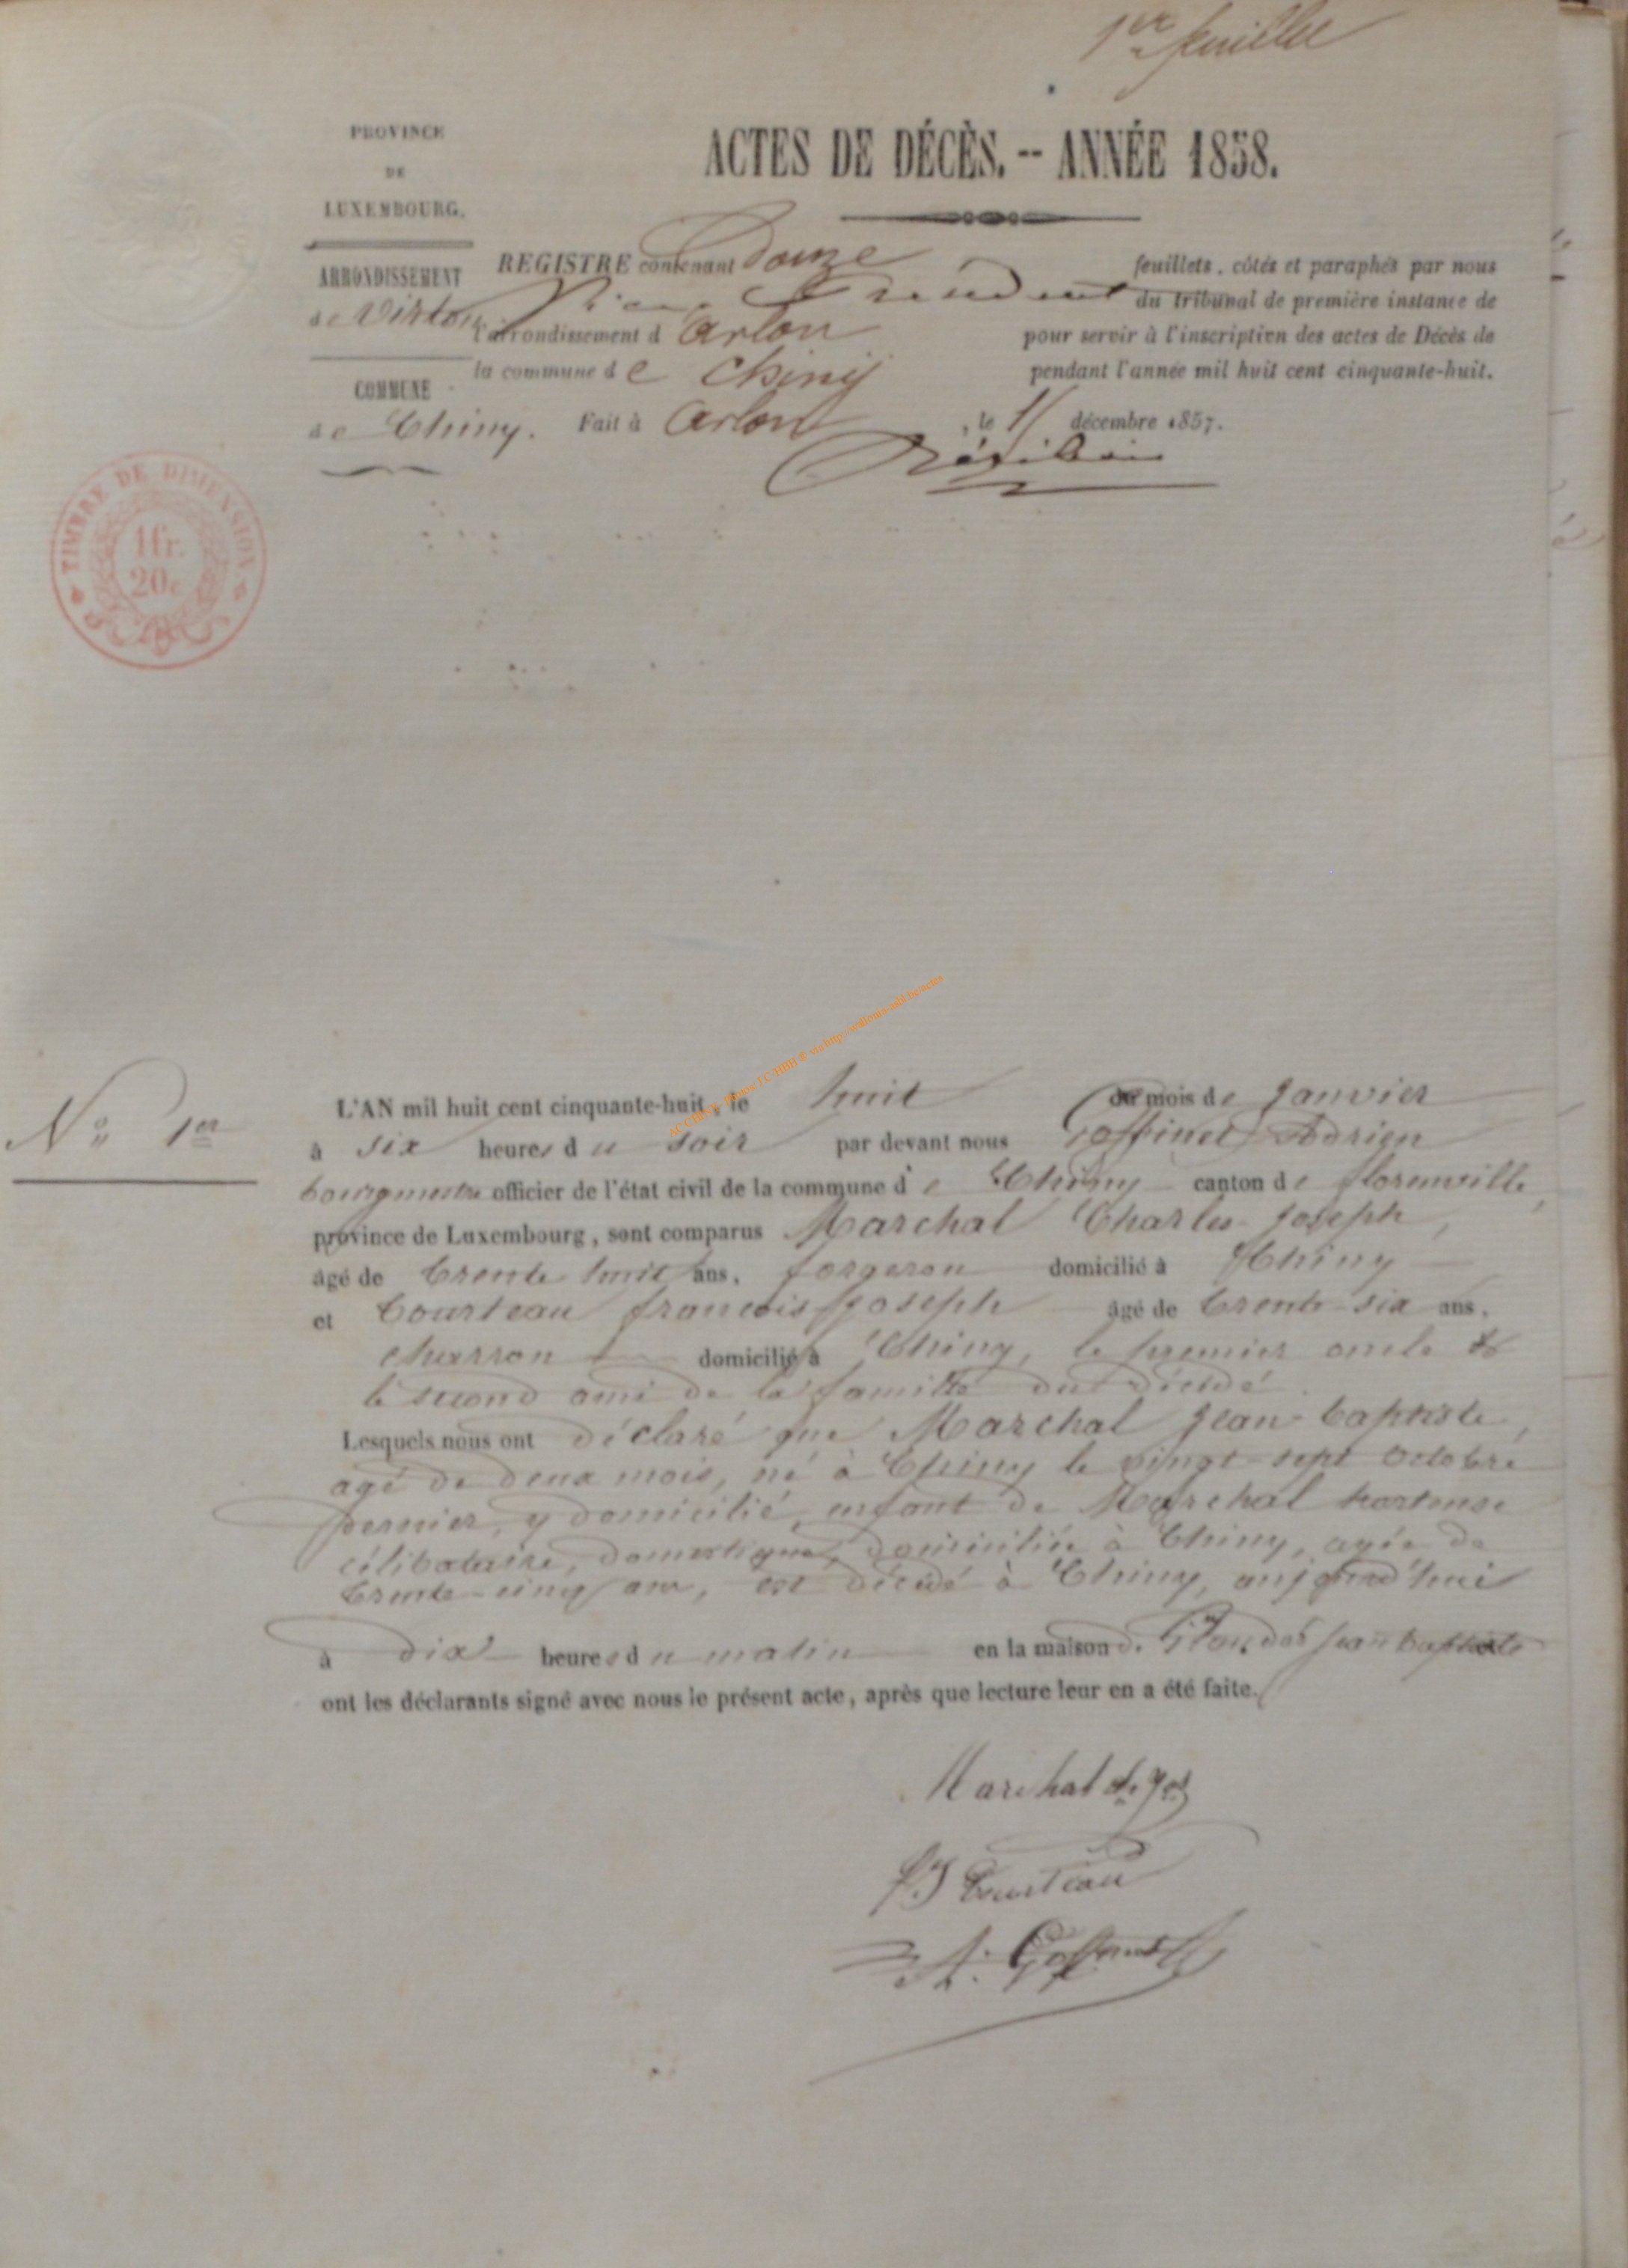 1er feuillet
PROVINCE
DE
LUXEMBOURG.
ACTES DE DÉCÈS. -- ANNÉE 1858.
ARRONDISSEMENT
de Virton
COMMUNE
de Chiny.
REGISTRE contenant Douze feuillets, côtés et paraphés par nous
Président du tribunal de première instance de
l'arrondissement d'Arlon pour servir à l'inscription des actes de Décès de
la commune de Chiny pendant l'année mil huit cent cinquante-huit.
Fait à Arlon, le décembre 1857.
TIMBRE DE DIMENSION
1fr.
20c
No 1er
L'AN mil huit cent cinquante-huit, le huit du mois de Janvier
à six heures du soir par devant nous Goffinet Adrien
bourgmestre officier de l'état civil de la commune de Chiny canton de florenville,
province de Luxembourg, sont comparus Marchal Charles Joseph,
âgé de trente huit ans, forgeron domicilié à Chiny
et Courteau françois Joseph âgé de trente-six ans,
charron domicilié à Chiny, le premier oncle &
le second ami de la famille du décédé
Lesquels nous ont déclaré que Marchal Jean-baptiste,
agé de deux mois, né à Chiny le vingt-sept octobre
dernier, y domicilié, enfant de Marchal hortense
célibataire, domestique, domiciliée à Chiny, agée de
trente-cinq ans, est décédé à Chiny, aujourd'hui
à dix heures du matin en la maison de Jean baptiste
ont les déclarants signé avec nous le présent acte, après que lecture leur en a été faite.
Marchal ch. Jos
f J Courteau
A. Goffinet